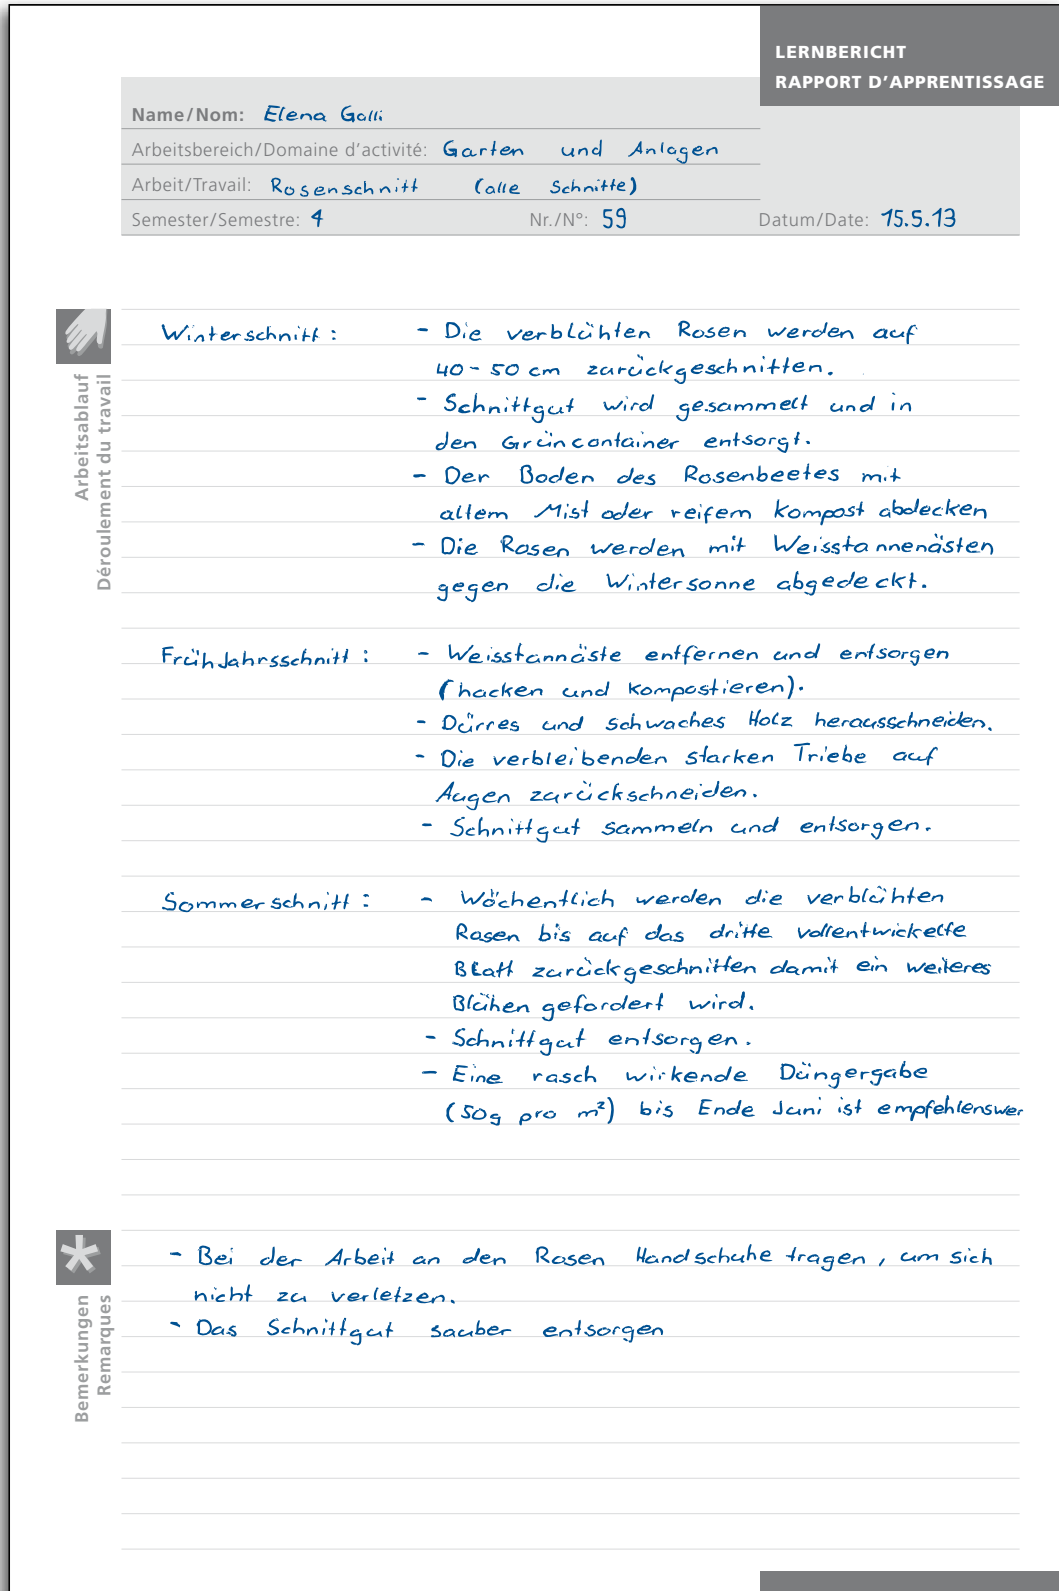 LERNBERICHT
RAPPORT D'APPRENTISSAGE
Name/Nom: Elena Galli
Arbeitsbereich/Domaine d'activité: Garten und Anlagen
Arbeit/Travail: Rosenschnitt (alle Schnitte)
Semester/Semestre: 4 Nr./N°: 59 Datum/Date: 15.5.13
Arbeitsablauf
Déroulement du travail
Winterschnitt: - Die verblühten Rosen werden auf
40-50 cm zurückgeschnitten.
- Schnittgut wird gesammelt und in
den Grüncontainer entsorgt.
- Der Boden des Rosenbeetes mit
altem Mist oder reifem Kompost abdecken
- Die Rosen werden mit Weisstannenästen
gegen die Wintersonne abgedeckt.
Frühjahrsschnitt: - Weisstannäste entfernen und entsorgen
(hacken und kompostieren).
- Dürres und schwaches Holz herausschneiden.
- Die verbleibenden starken Triebe auf
Augen zurückschneiden.
- Schnittgut sammeln und entsorgen.
Sommerschnitt: - Wöchentlich werden die verblühten
Rosen bis auf das dritte vollentwickelte
Blatt zurückgeschnitten damit ein weiteres
Blühen gefordert wird.
- Schnittgut entsorgen.
- Eine rasch wirkende Düngergabe
(50g pro m²) bis Ende Juni ist empfehlenswer
Bemerkungen
Remarques
- Bei der Arbeit an den Rosen Handschuhe tragen, um sich
nicht zu verletzen.
- Das Schnittgut sauber entsorgen